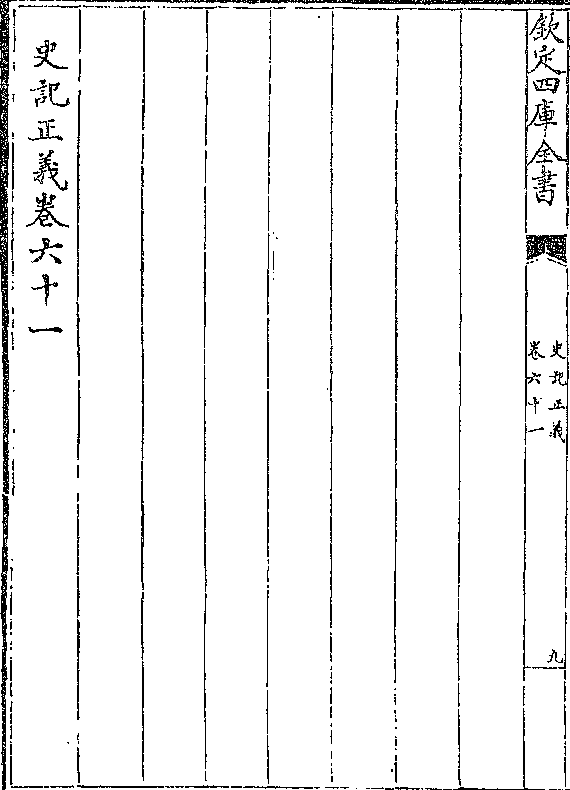 欽定四庫全書
史記正義
卷六十一
九
史記正義卷六十一